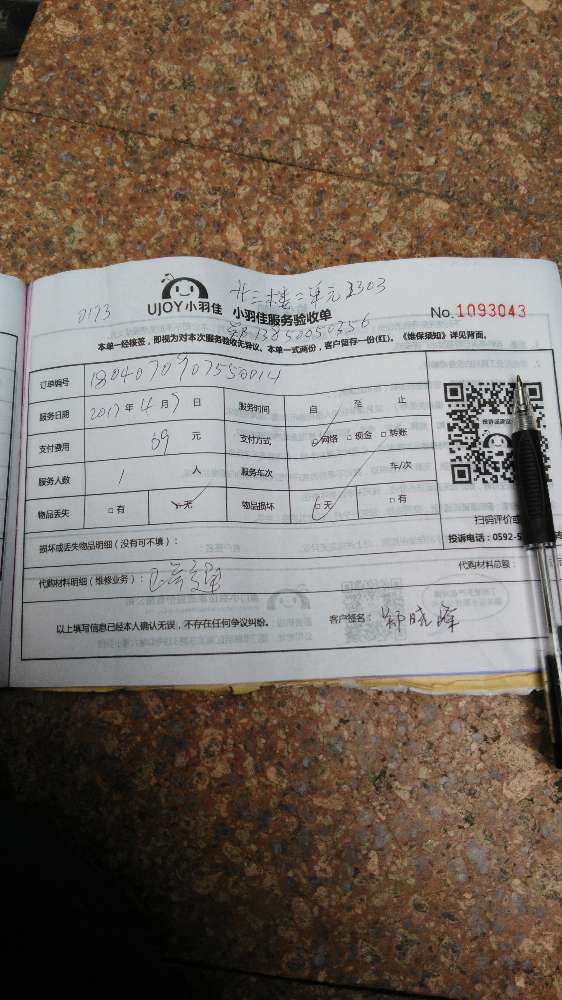 廿三楼二单元2303
0173 UJOY小羽佳 小羽佳服务验收单 No.1093043
郑13850050356
本单一经接签，即视为对本次服务验收无异议。本单一式两份，客户留存一份(红)。《维保须知》详见背面。
订单编号
服务日期 2017年4月9日 服务时间 自 至 止
支付费用 69 元 支付方式 网络 □现金 □转账
服务人数 1 人 服务车次 车/次
物品丢失 □有 □无 物品损坏 □无 □有
扫码评价或
投诉电话：0592-5
损坏或丢失物品明细（没有可不填）：
代购材料明细（维修业务）： 代购材料总额：
以上填写信息已经本人确认无误，不存在任何争议纠纷。 客户签名：郑晓峰